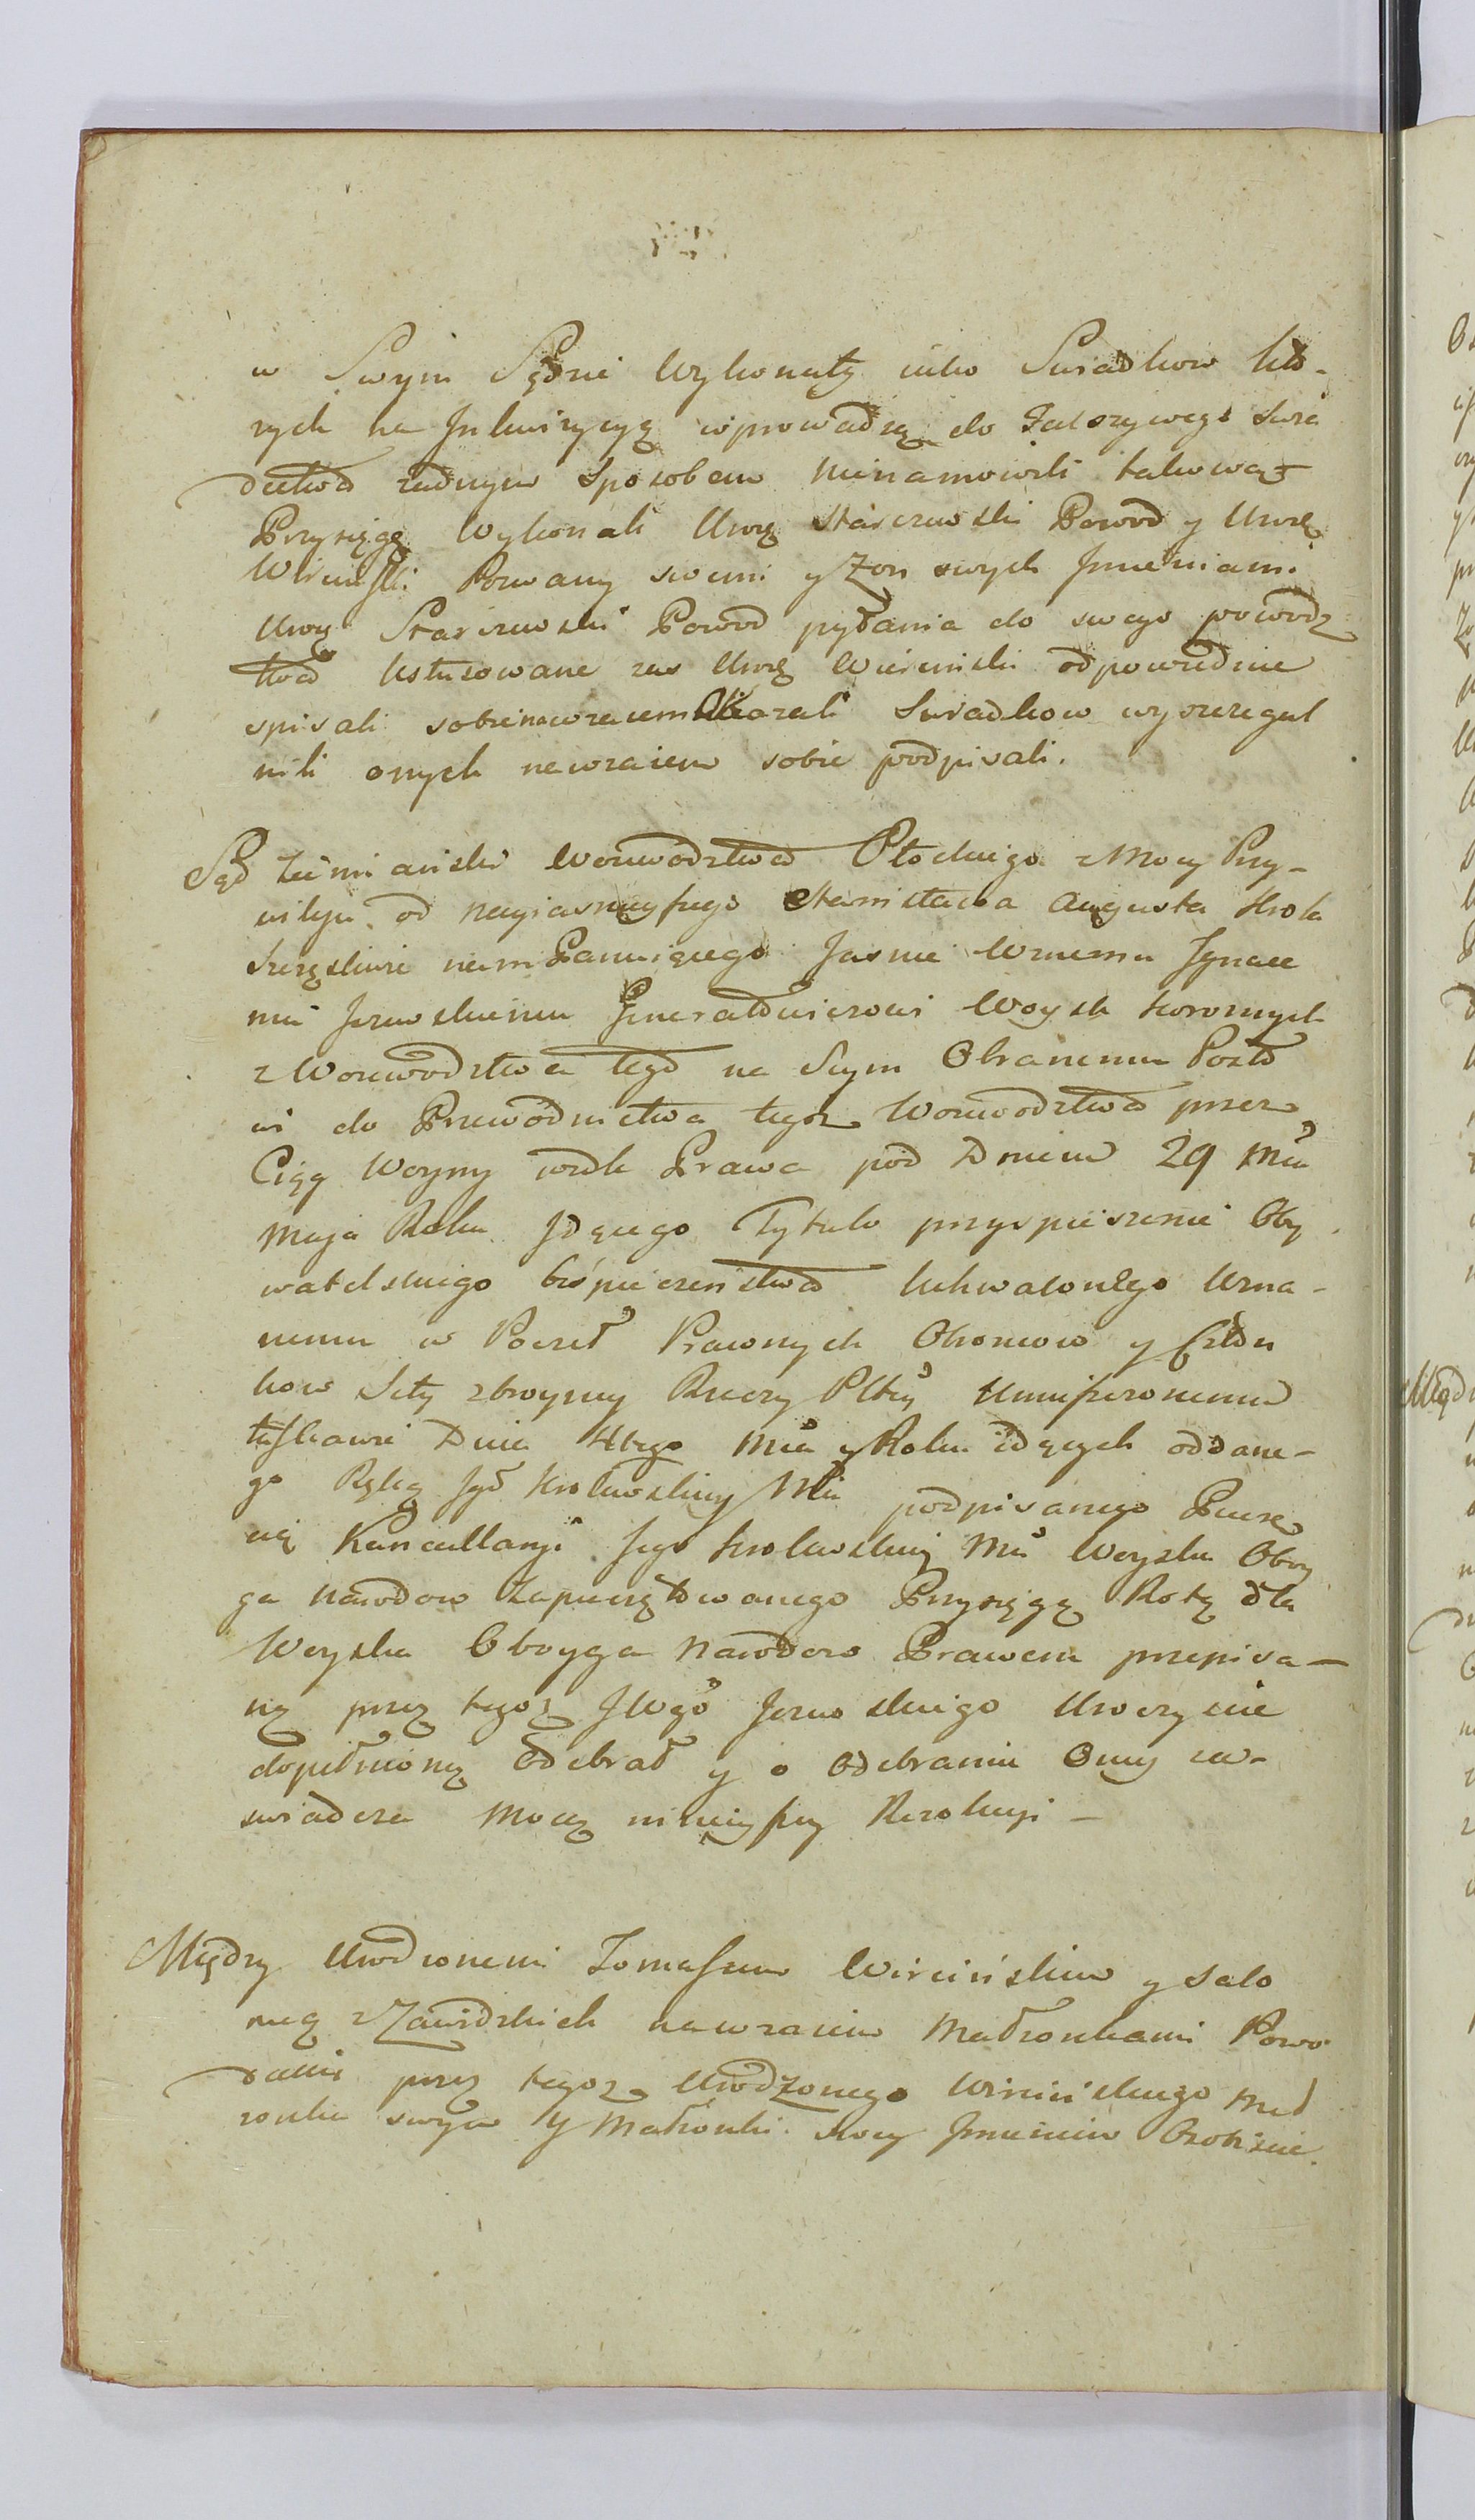 w Swym Sądzie Wykonały iako Swiadkow któ-
rych na Jnkwizycyą wprowadzą do Fałszywego Swia
dectwa żadnym Sposobem nienamowili takowąż
Przysięgę Wykonali Urog Starczewski Powod y Urog
Wiemski Pozwany swemi y Zon swych Jmieniami
Urog Starczewski Powod pytania do swego powodz
twa Ustosowane zas Urog Wierciński odpowiednie
spisali sobienawzaiem Okazali Swiadkow wyszczegul
nili onych nawzaiem sobie podpisali.
Sąd Ziemiański Woiewodztwa Płockiego z Mocy Przy-
wileju od Nayiasnieyszego Stanisława Augusta Krola
Szczęsliwie nam Panuiącego Jasnie Wmemu Jgnace
mu Jezewskiemu Jeneratowi Woysk koronnych
z Woiewodztwa tego na Seym Obranemu Posło
wi do Przewodnictwa tegoż Woiewodztwa przez
Ciąg Woyny wedle Prawa pod Dniem 29 Mca
Maja Roku Jdącego Tytulo przyspieszenie Oby
watelskiego bespieczenstwa Uchwalonego Uzna-
nemu w Poczet Prawnych Obroncow y Człon
kow Siły zbroyney Rzeczy Pltey Umieszczonemu
łaskawie Dnia 4tego Mca y Roku idących oddane-
go Ręką Jgo Krolewskiey Mci podpisanego Piecze
cią Kancellaryi Jego Krolewskiey Mci Woyska Oboy
ga Narodow Zapieczętowanego Przysięgę Rotą dla
Woyska Oboyga Narodow Prawem przepisa-
ną przez tegoż JWgo Jezewskiego Uroczyscie
dopełnioną Odebrał y o Odebraniu Oney za-
swiadcza Mocą ninieyszey Rezolucyi -
Między Urodzonemi Tomaszem Wiercińskim y Salo
meą z Zawidzkich nawzaiem Małżonkami Powo
dami przez tegoż Urodzonego Wiercińskiego Mał
żonka swym y Małżonki swey Jmieniem Osobiscie